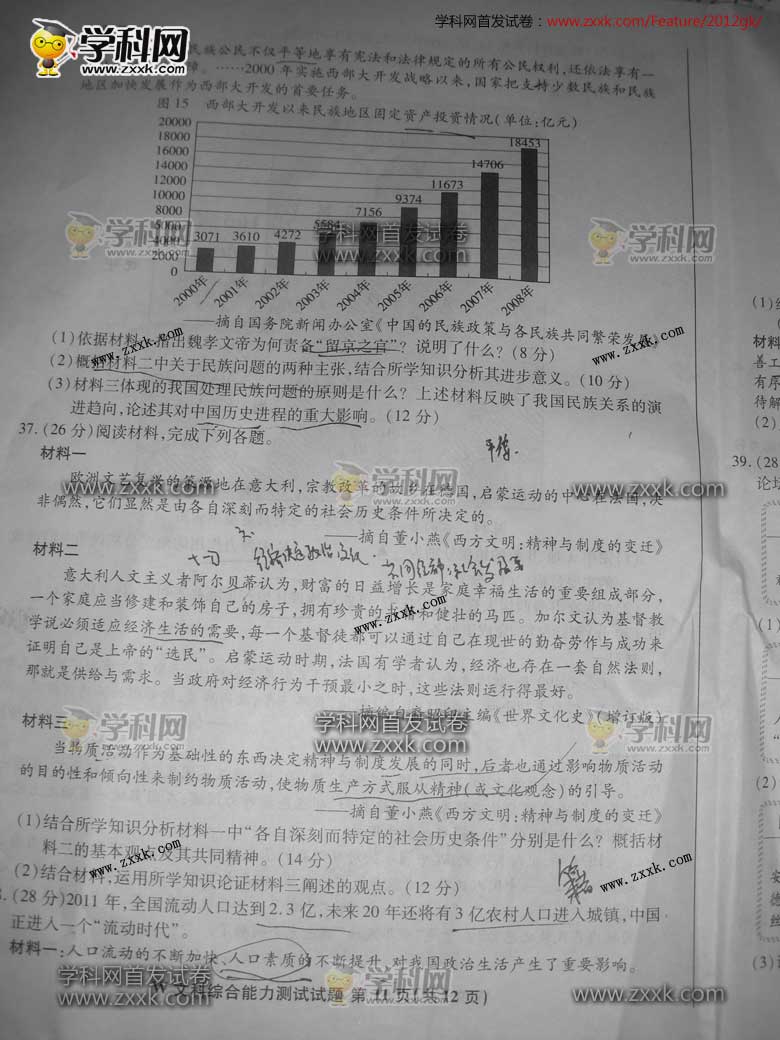 学科网首发试卷：www.zxxk.com/Feature/2012gk/
学科网
www.zxxk.com
民族公民不仅平等地享有宪法和法律规定的所有公民权利,还依法享有一
障。……2000年实施西部大开发战略以来,国家把支持少数民族和民族
地区加快发展作为西部大开发的首要任务。
图15 西部大开发以来民族地区固定资产投资情况(单位:亿元)
20000
18000
16000
14000
12000
10000
8000
6000
4000
2000
0
3071 3610 4272 5584 7156 9374 11673 14706 18453
2000年 2001年 2002年 2003年 2004年 2005年 2006年 2007年 2008年
——摘自国务院新闻办公室《中国的民族政策与各民族共同繁荣发展》
(1)依据材料一,指出魏孝文帝为何责备“留京之官”?说明了什么?(8分)
(2)概括材料二中关于民族问题的两种主张,结合所学知识分析其进步意义。(10分)
(3)材料三体现的我国处理民族问题的原则是什么?上述材料反映了我国民族关系的演
进趋向,论述其对中国历史进程的重大影响。(12分)
37.(26分)阅读材料,完成下列各题。
材料一
欧洲文艺复兴的策源地在意大利,宗教改革的故乡在德国,启蒙运动的中心在法国,决
非偶然,它们显然是由各自深刻而特定的社会历史条件所决定的。
——摘自董小燕《西方文明:精神与制度的变迁》
材料二
意大利人文主义者阿尔贝蒂认为,财富的日益增长是家庭幸福生活的重要组成部分,
一个家庭应当修建和装饰自己的房子,拥有珍贵的书籍和健壮的马匹。加尔文认为基督教
学说必须适应经济生活的需要,每一个基督徒都可以通过自己在现世的勤奋劳作与成功来
证明自己是上帝的“选民”。启蒙运动时期,法国有学者认为,经济也存在一套自然法则,
那就是供给与需求。当政府对经济行为干预最小之时,这些法则运行得最好。
主编《世界文化史》(增订版)
材料三
当物质活动作为基础性的东西决定精神与制度发展的同时,后者也通过影响物质活动
的目的性和倾向性来制约物质活动,使物质生产方式服从精神(或文化观念)的引导。
——摘自董小燕《西方文明:精神与制度的变迁》
(1)结合所学知识分析材料一中“各自深刻而特定的社会历史条件”分别是什么?概括材
料二的基本观点及其共同精神。(14分)
(2)结合材料,运用所学知识论证材料三阐述的观点。(12分)
(28分)2011年,全国流动人口达到2.3亿,未来20年还将有3亿农村人口进入城镇,中国
正进入一个“流动时代”。
材料一:人口流动的不断加快,人口素质的不断提升,对我国政治生活产生了重要影响。
文科综合能力测试试题 第11页(共12页)
(1)
材料
善工
有序
待解
(2)
39.(28
论坛
(1)
(2)
(3)
学科网首发试卷
www.zxxk.com